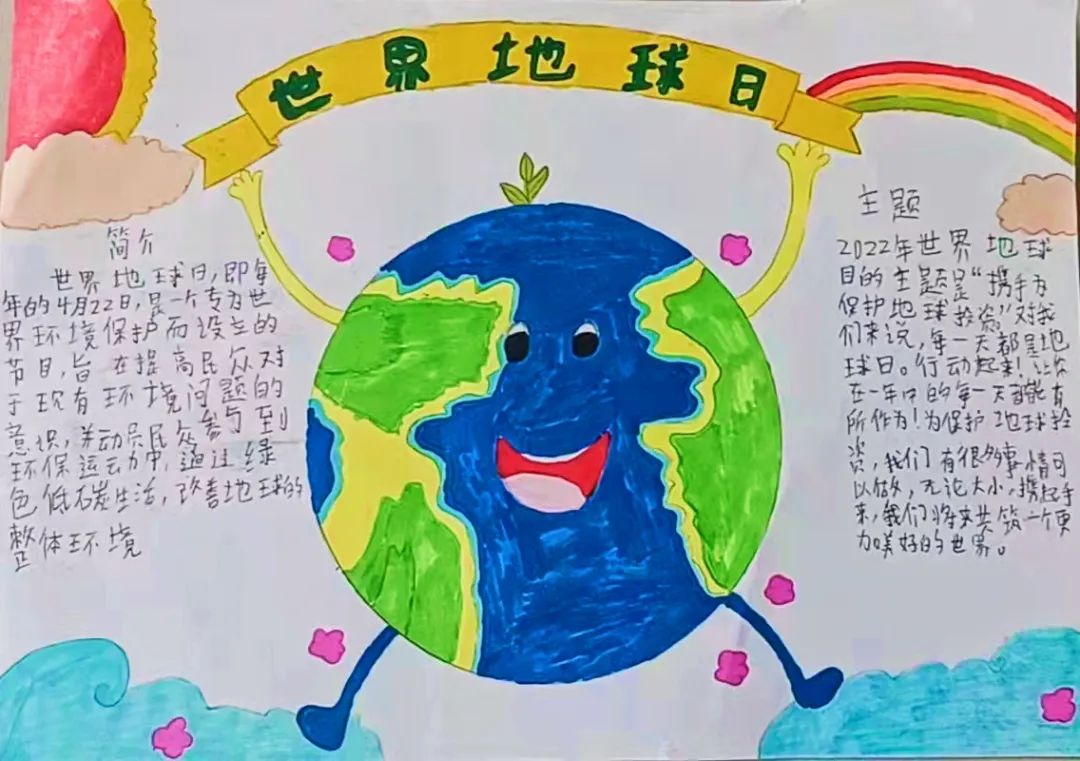 世界地球日
简介
世界地球日,即每
年的4月22日,是一个专为世
界环境保护而设立的
节日,旨在提高民众对
于现有环境问题的
意识,并动员民众参与到
环保运动中,通过绿
色低碳生活,改善地球的
整体环境
主题
2022年世界地球
日的主题是“携手为
保护地球投资”对我
们来说,每一天都是地
球日。行动起来!让你
在一年中的每一天都能有
所作为!为保护地球投
资,我们有很多事情可
以做,无论大小,携起手
来,我们将来共筑一个更
加美好的世界。